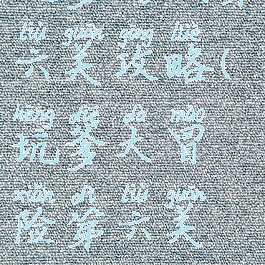 liù guān gōng lüè
六关攻略(
kēng diē dà mào
坑爹大冒
xiǎn dì liù guān
险第六关